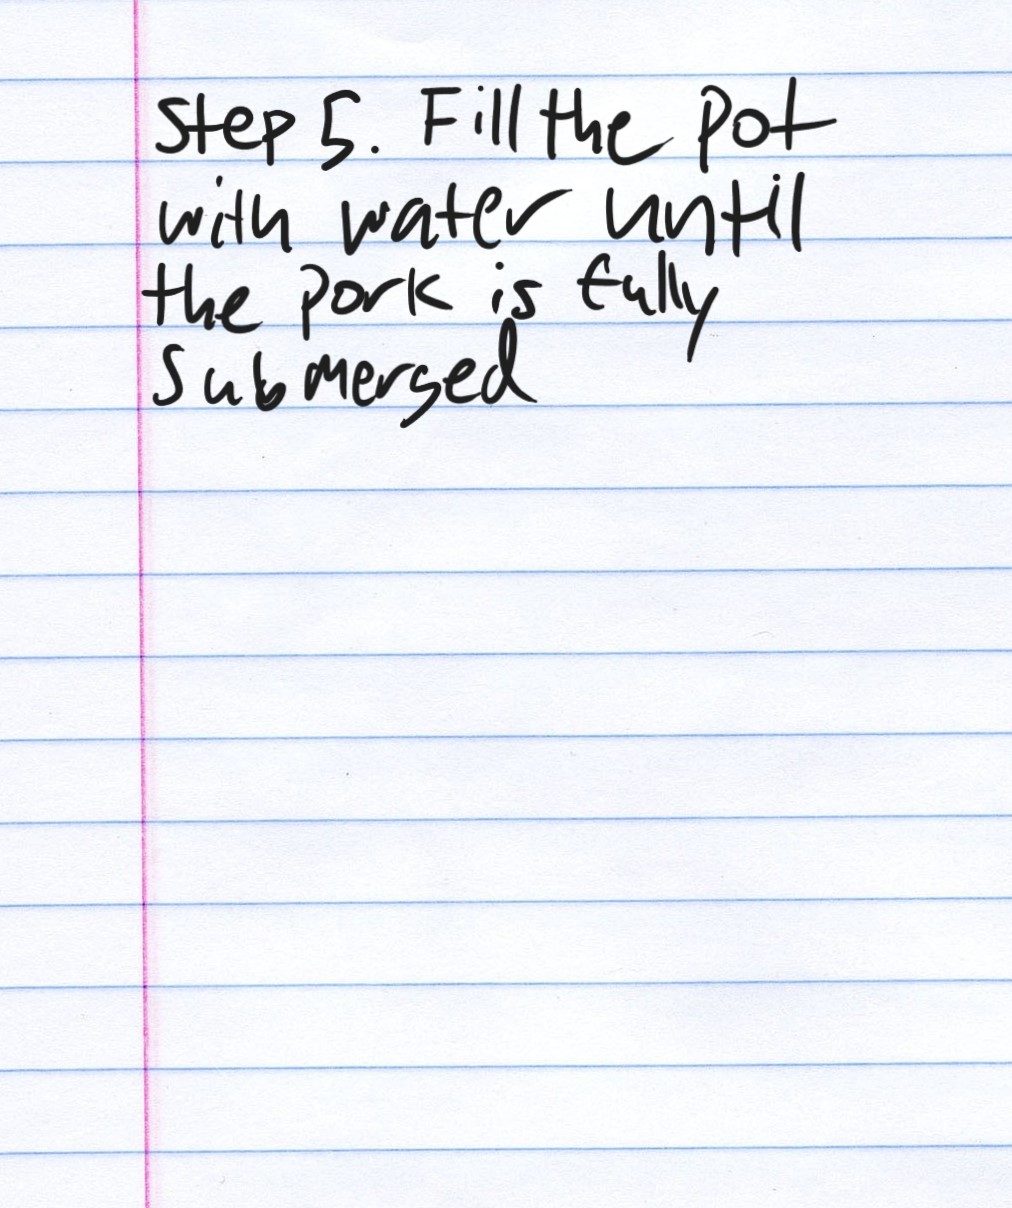 Step 5. Fill the pot
with water until
the pork is fully
submerged